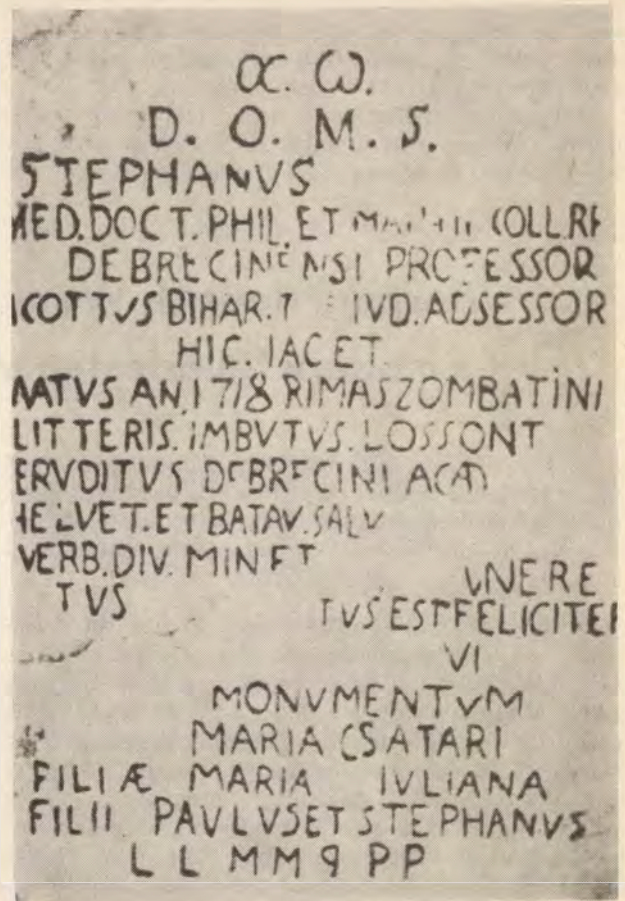 α. ω.
D. O. M. S.
STEPHANVS
MED. DOCT. PHIL. ET COLL. RF
DEBRECINENSI PROFESSOR
BIHAR. IVD. ADSESSOR
HIC. IACET
NATVS AN. 1718 RIMASZOMBATINI
LITTERIS. IMBVTVS. LOSSONT
ERVDITVS DEBRECINI
HELVET. ET BATAV. SALV
VERB. DIV. MIN ET
VNERE
TVS
TVS EST FELICITER
VI
MONVMENTVM
MARIA CSATARI
FILIÆ MARIA IVLIANA
FILII PAVLVS ET STEPHANVS
L L M M Q P P